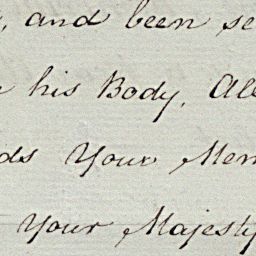 , and been se
his Body, All
ds Your Mem
Your Majesty